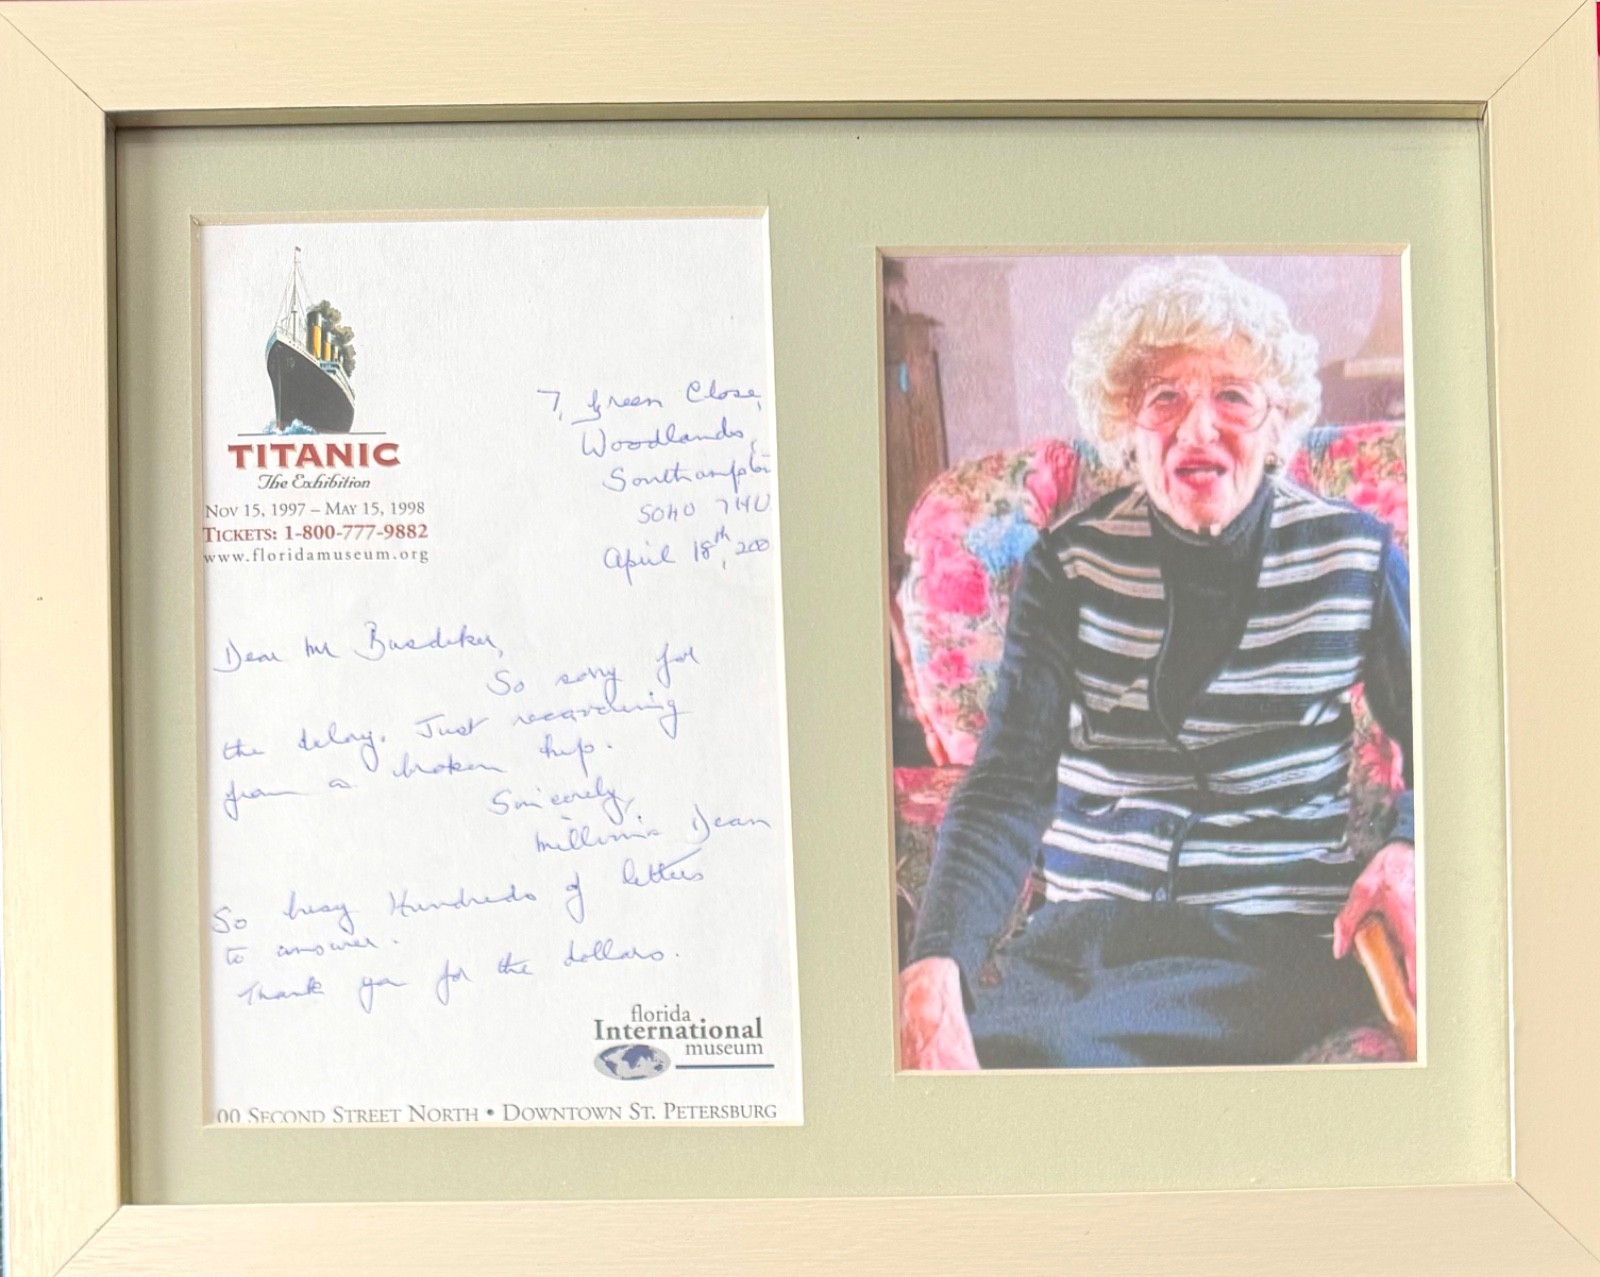 TITANIC
The Exhibition
NOV 15, 1997 – MAY 15, 1998
TICKETS: 1-800-777-9882
www.floridamuseum.org
7, Green Close,
Woodlands,
Southampton
SO40 7HU
April 18th, 200
Dear Mr
So sorry for
the delay. Just recovering
from a broken hip.
Sincerely,
Millvina Dean
So busy Hundreds of letters
to answer.
Thank you for the dollars.
florida
International
museum
00 SECOND STREET NORTH • DOWNTOWN ST. PETERSBURG